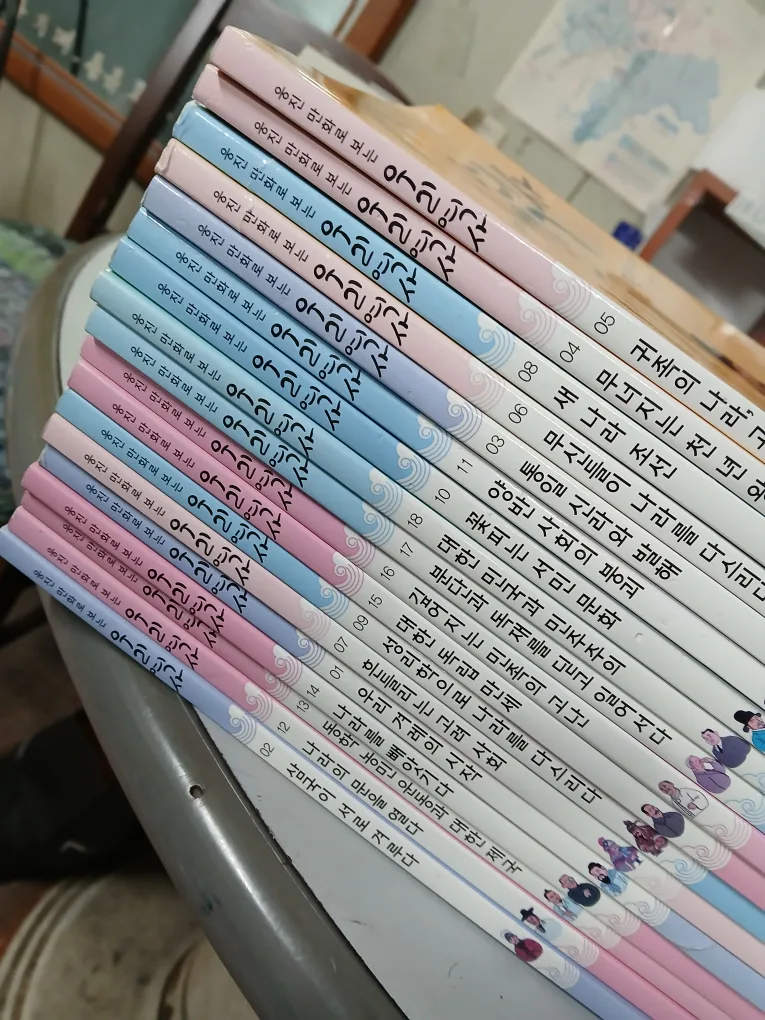 웅진 만화로 보는 우리역사 05 귀족의 나라,
웅진 만화로 보는 우리역사 04 무너지는 천 년
웅진 만화로 보는 우리역사 08 새 나라 조선
웅진 만화로 보는 우리역사 06 무신들이 나라를 다스리다
웅진 만화로 보는 우리역사 03 통일 신라와 발해
웅진 만화로 보는 우리역사 11 양반 사회의 붕괴
웅진 만화로 보는 우리역사 10 꽃피는 서민 문화
웅진 만화로 보는 우리역사 18 대한 민국과 민주주의
웅진 만화로 보는 우리역사 17 분단과 독재를 딛고 일어서다
웅진 만화로 보는 우리역사 16 깊어지는 민족의 고난
웅진 만화로 보는 우리역사 15 대한 독립 만세
웅진 만화로 보는 우리역사 09 성리학으로 나라를 다스리다
웅진 만화로 보는 우리역사 07 흔들리는 고려 사회
웅진 만화로 보는 우리역사 01 우리 겨레의 시작
웅진 만화로 보는 우리역사 14 나라를 빼앗기다
웅진 만화로 보는 우리역사 13 동학 농민 운동과 대한 제국
웅진 만화로 보는 우리역사 12 나라의 문을 열다
웅진 만화로 보는 우리역사 02 삼국이 서로 겨루다